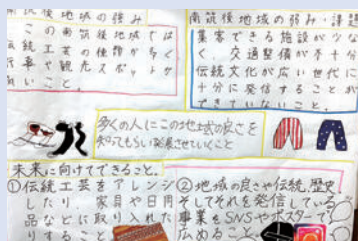 南筑後地域の強み
この南筑後地域では
伝統工芸の種類が多く
行事や観光スポットが
いこと。
南筑後地域の弱み・課題
集客できる施設が少な
く、交通整備が不十分
伝統文化が広い世代に
十分に発信することが
できていないこと。
多くの人にこの地域の良さを
知ってもらい発展させていくこと
未来に向けてできること。
①伝統工芸をアレンジ
したり、家具や日用
品などに取り入れた
りすること
②地域の良さや伝統、歴史
そしてそれを発信している
事業をSNSやポスターで
広めること。